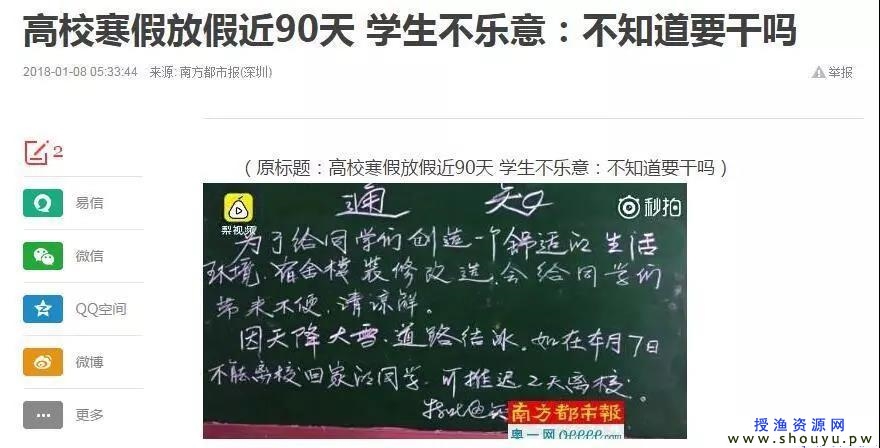 高校寒假放假近90天 学生不乐意：不知道要干吗
2018-01-08 05:33:44 来源: 南方都市报(深圳)
举报
2
（原标题：高校寒假放假近90天 学生不乐意：不知道要干吗）
易信
微信
QQ空间
微博
更多
梨视频
秒拍
通 知
为了给同学们创造一个舒适的生活
环境，宿舍楼装修改造，会给同学们
带来不便，请谅解。
因天降大雪，道路结冰。如在本月7日
不能离校回家的同学，可推迟2天离校。
南方都市報
奥一网
授渔资源网
www.shouyu.pw